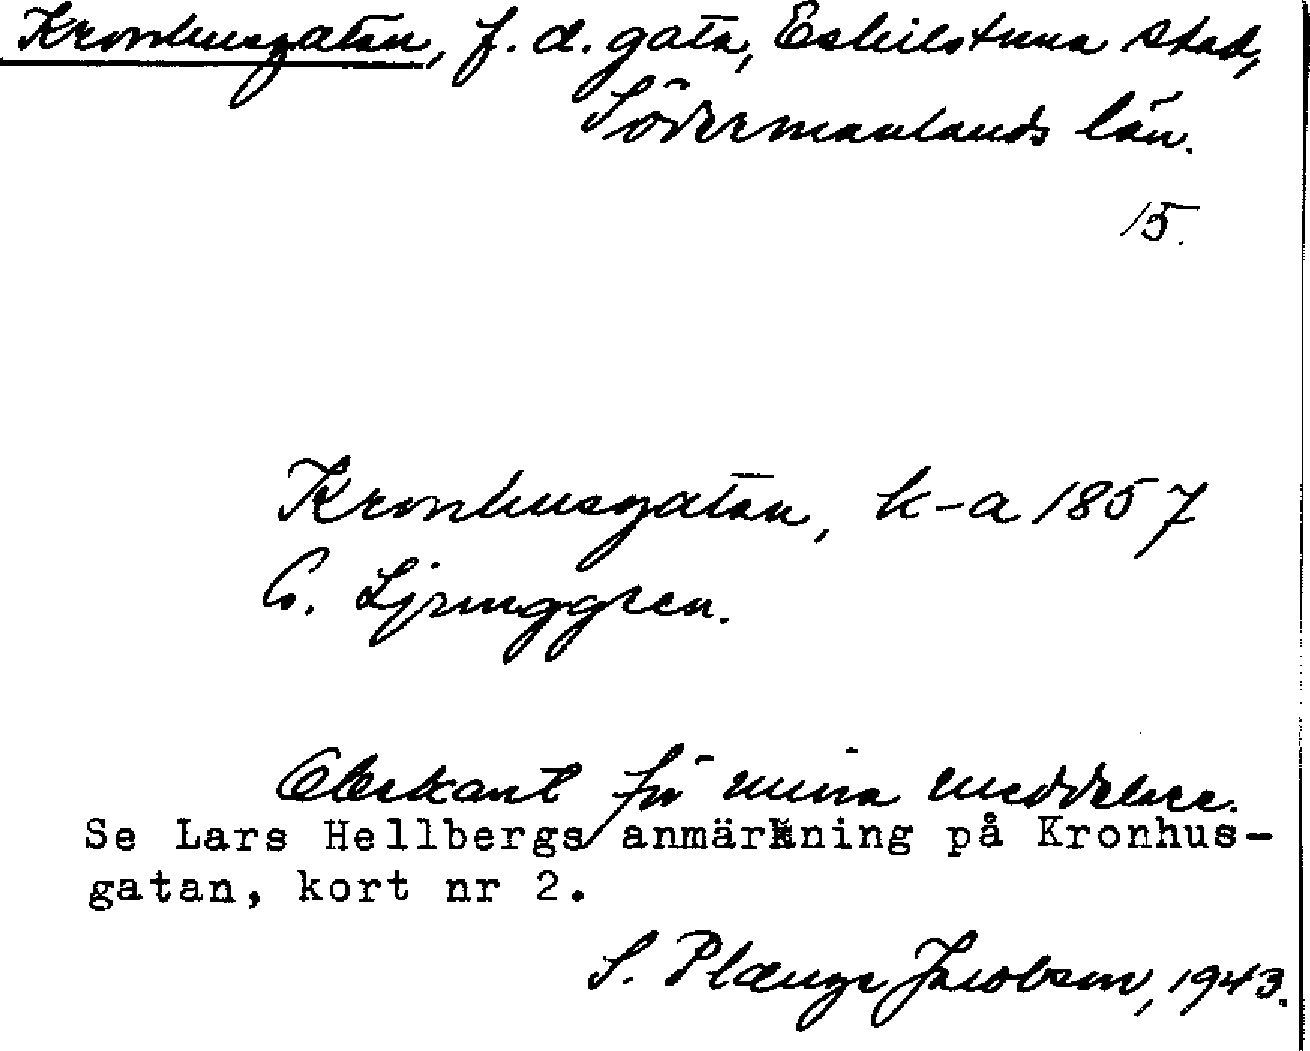 Kronhusgatan, f. d. gata, Eskilstuna stad,
Södermanlands län.
15.
Kronhusgatan, k-a 1857
G. Ljunggren.
Obekant för mina meddelare.
Se Lars Hellbergs anmärkning på Kronhus-
gatan, kort nr 2.
S. Plænge Jacobson, 1943.